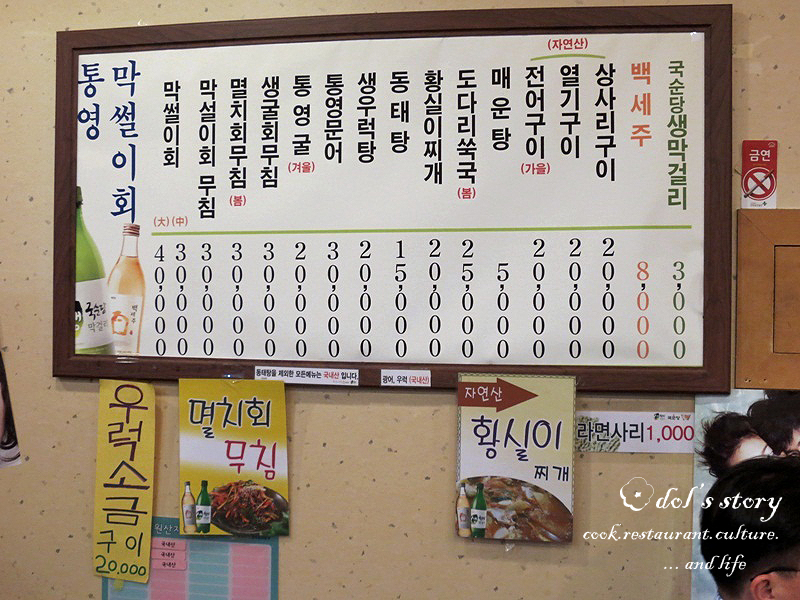 통영
막썰이회
막썰이회
(大) (中)
40,000
30,000
막설이회 무침
30,000
멸치회무침
(봄)
30,000
생굴회무침
30,000
통영굴
(겨울)
20,000
통영문어
30,000
생우럭탕
20,000
동태탕
15,000
황실이찌개
20,000
도다리쑥국
(봄)
25,000
매운탕
5,000
(자연산)
전어구이
(가을)
20,000
열기구이
20,000
상사리구이
20,000
백세주
8,000
국순당생막걸리
3,000
금연
국순당
막걸리
백세주
동태탕을 제외한 모든메뉴는 국내산 입니다.
광어, 우럭 (국내산)
우럭소금
구이
20,000
멸치회
무침
자연산
황실이
찌개
라면사리1,000
원산지
국내산
국내산
국내산
dol's story
cook.restaurant.culture.
... and life